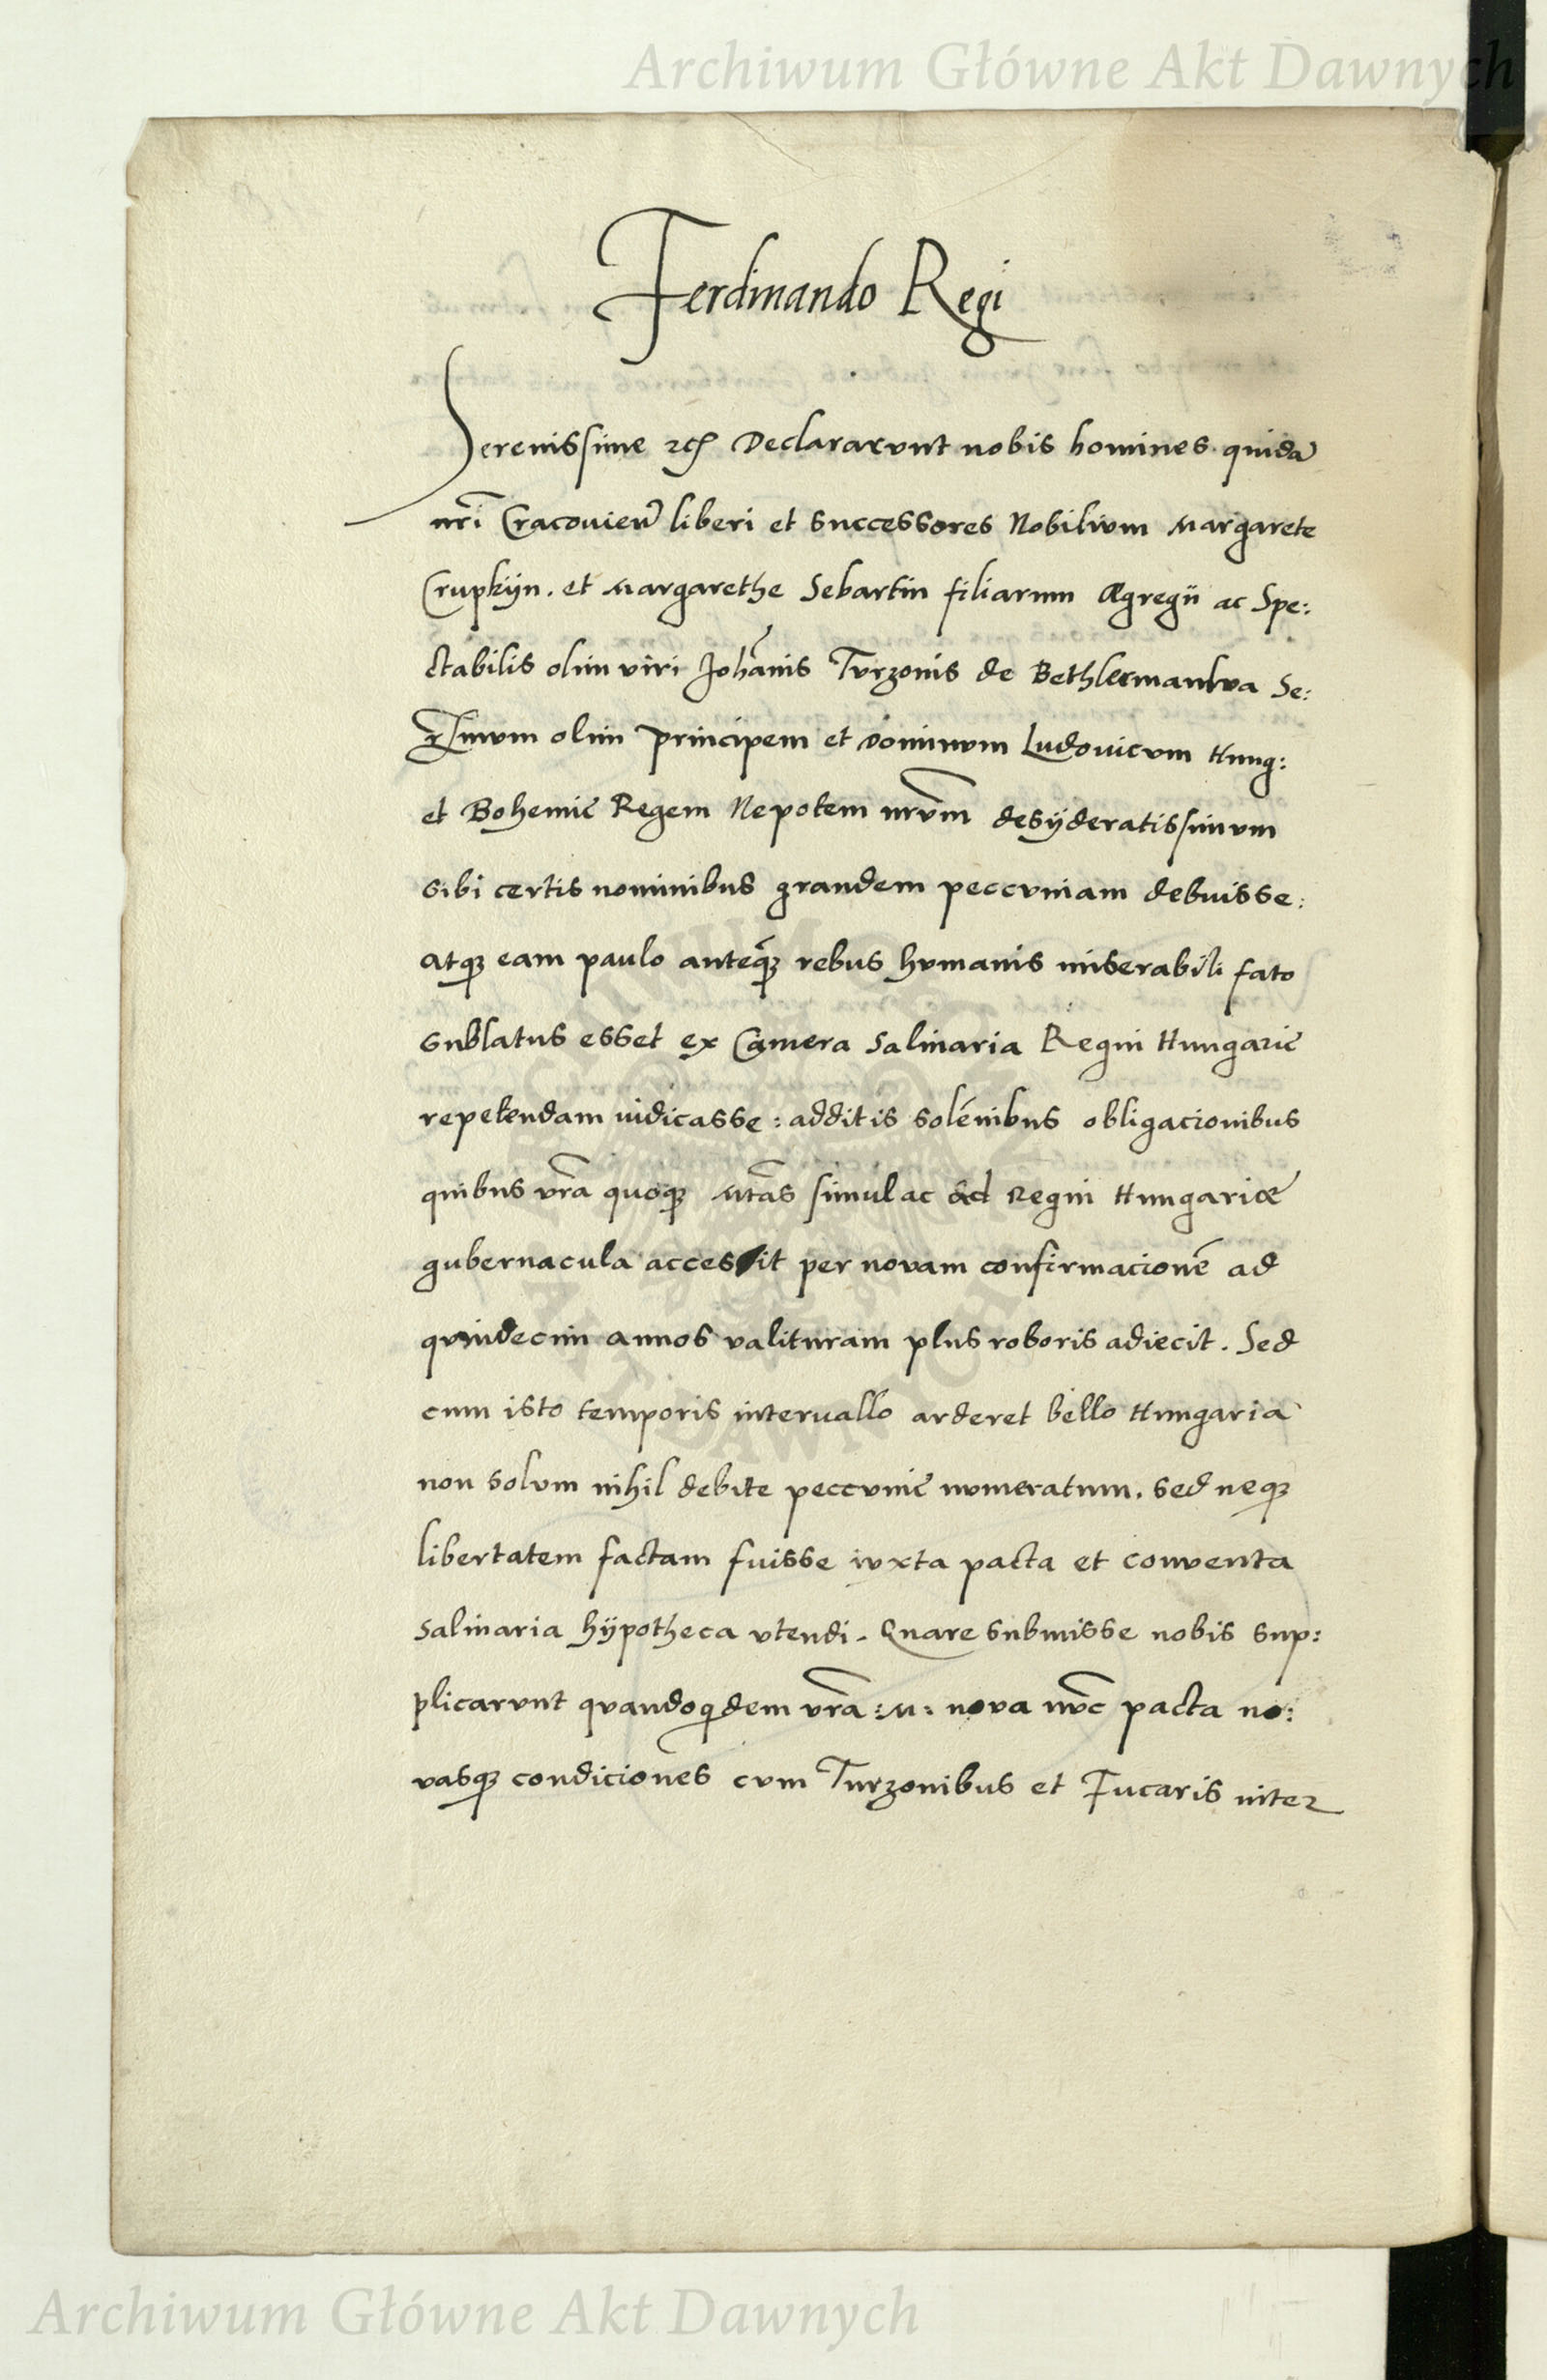 Archiwum Główne Akt Dawnych
Ferdinando Regi
Serenissime etc Declararunt nobis homines quidã
nrĩ Cracovieñ liberi et successores Nobilium Margarete
Crupkyn. et Margarethe Sebartin filiarum Ægregii ac Spe:
ctabilis olim viri Johãnis Turzonis de Bethlermanlva Se:
r̃imum olim principem et Dominum Ludovicum Hung:
et Bohemię Regem Nepotem nr̃um desÿderatissimum
sibi certis nominibus grandem peccuniam debuisse:
atqȝ eam paulo anteq̃ȝ rebus humanis miserabili fato
sublatus esset ex Camera Salinaria Regni Hungarię
repetendam iudicasse: additis solẽnibus obligacionibus
quibus vr̃a quoqȝ Mtãs simul ac ad Regni Hungariæ
gubernacula accessit per novam confirmacionẽ ad
quindecim annos valituram plus roboris adiecit. Sed
cum isto temporis intervallo arderet bello Hungaria
non solum nihil debite peccunię numeratum. sed neqȝ
libertatem factam fuisse iuxta pacta et conventa
salinaria hÿpotheca utendi. Quare submisse nobis sup:
plicarunt quandoqidem vr̃a :M: nova nũc pacta no:
vasqȝ condiciones cum Turzonibus et Fucaris inter
Archiwum Główne Akt Dawnych